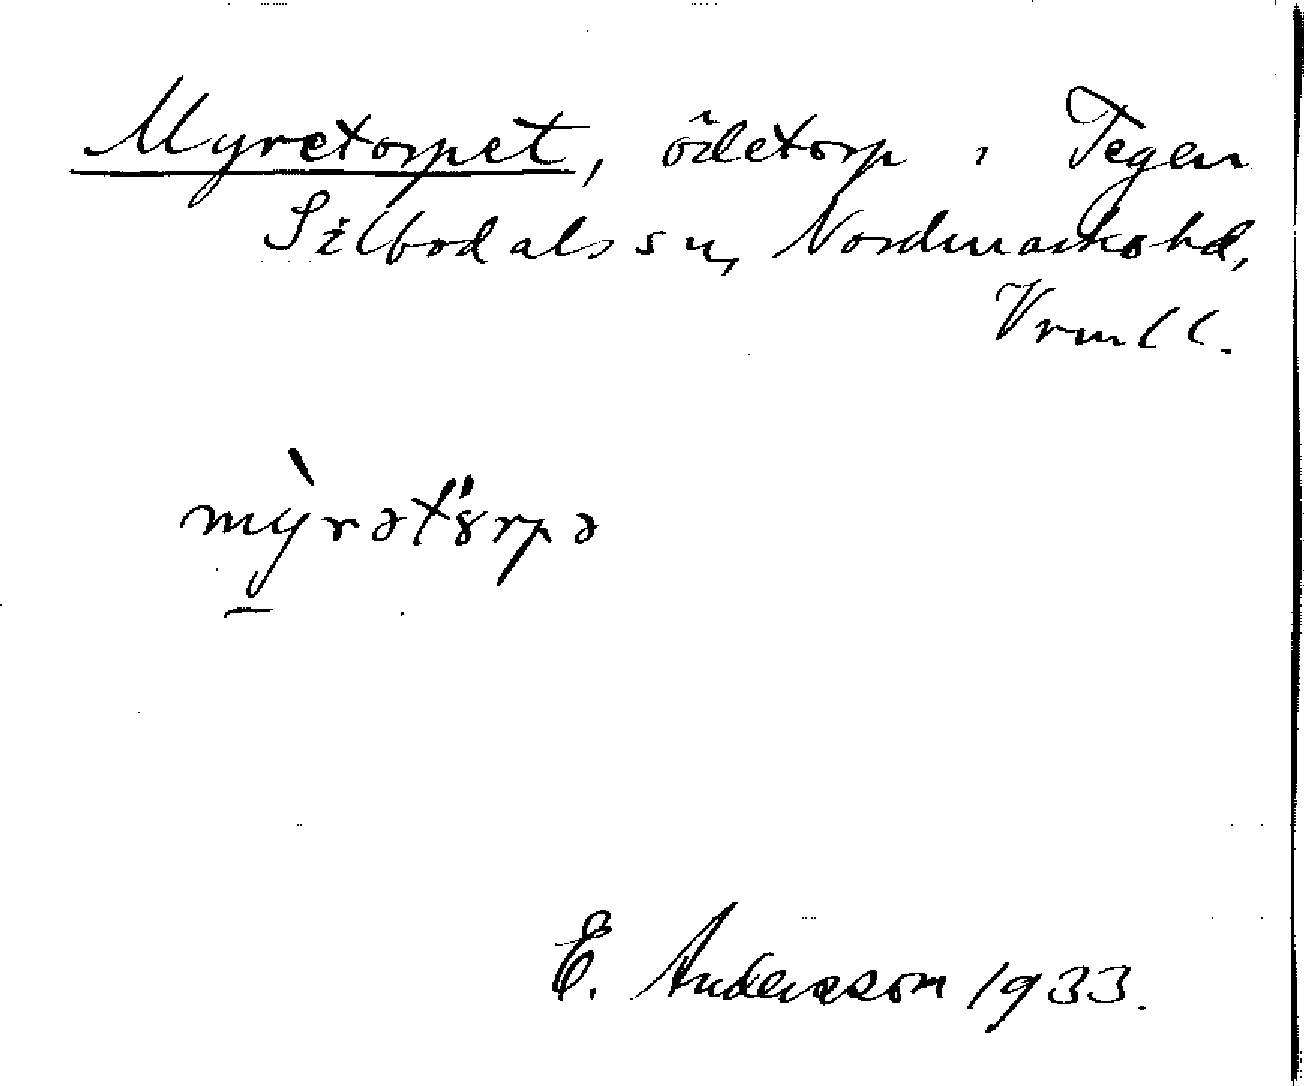 Myretorpet, ödetorp i Tegen
Silbodals sn, Nordmarks hd,
Vrml l.
mỳ̱rətȣ̈rpə
E. Andersson 1933.